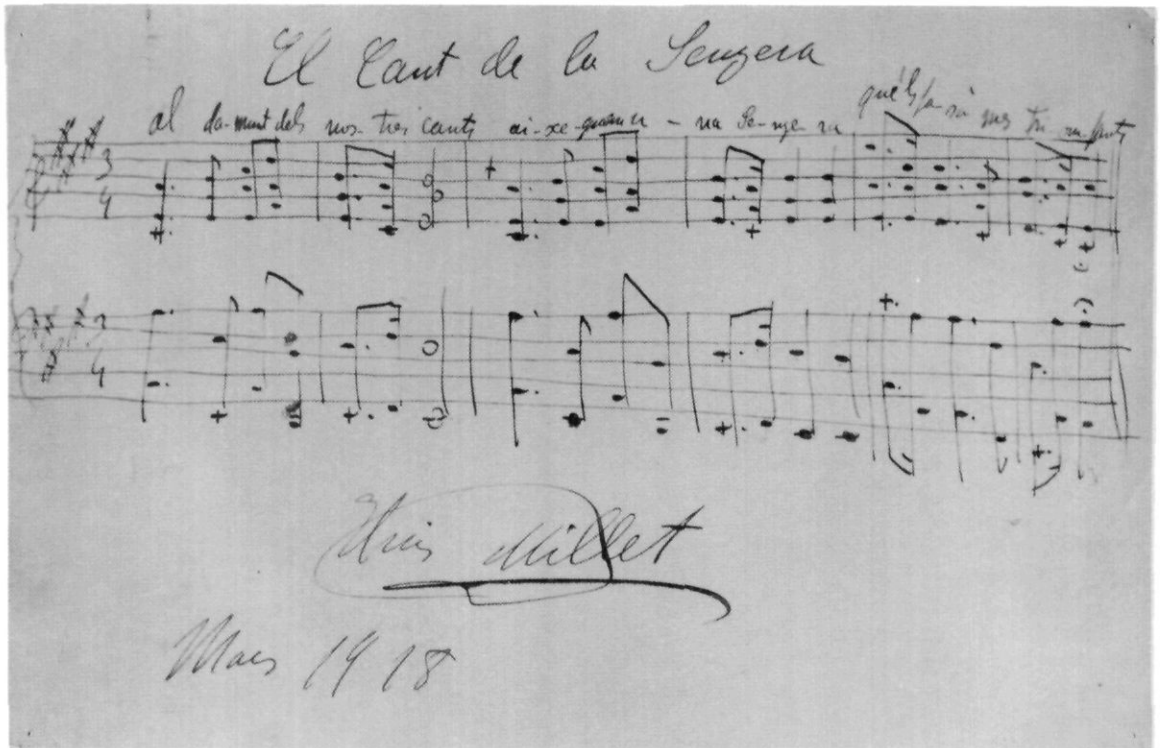 El Cant de la Senyera
al da-munt dels nos-tres cants ai-xe-quem u-na Se-nye-ra que'ls fa-rà mes tri-om-fants
3
4
3
4
Lluis Millet
Mars 1918